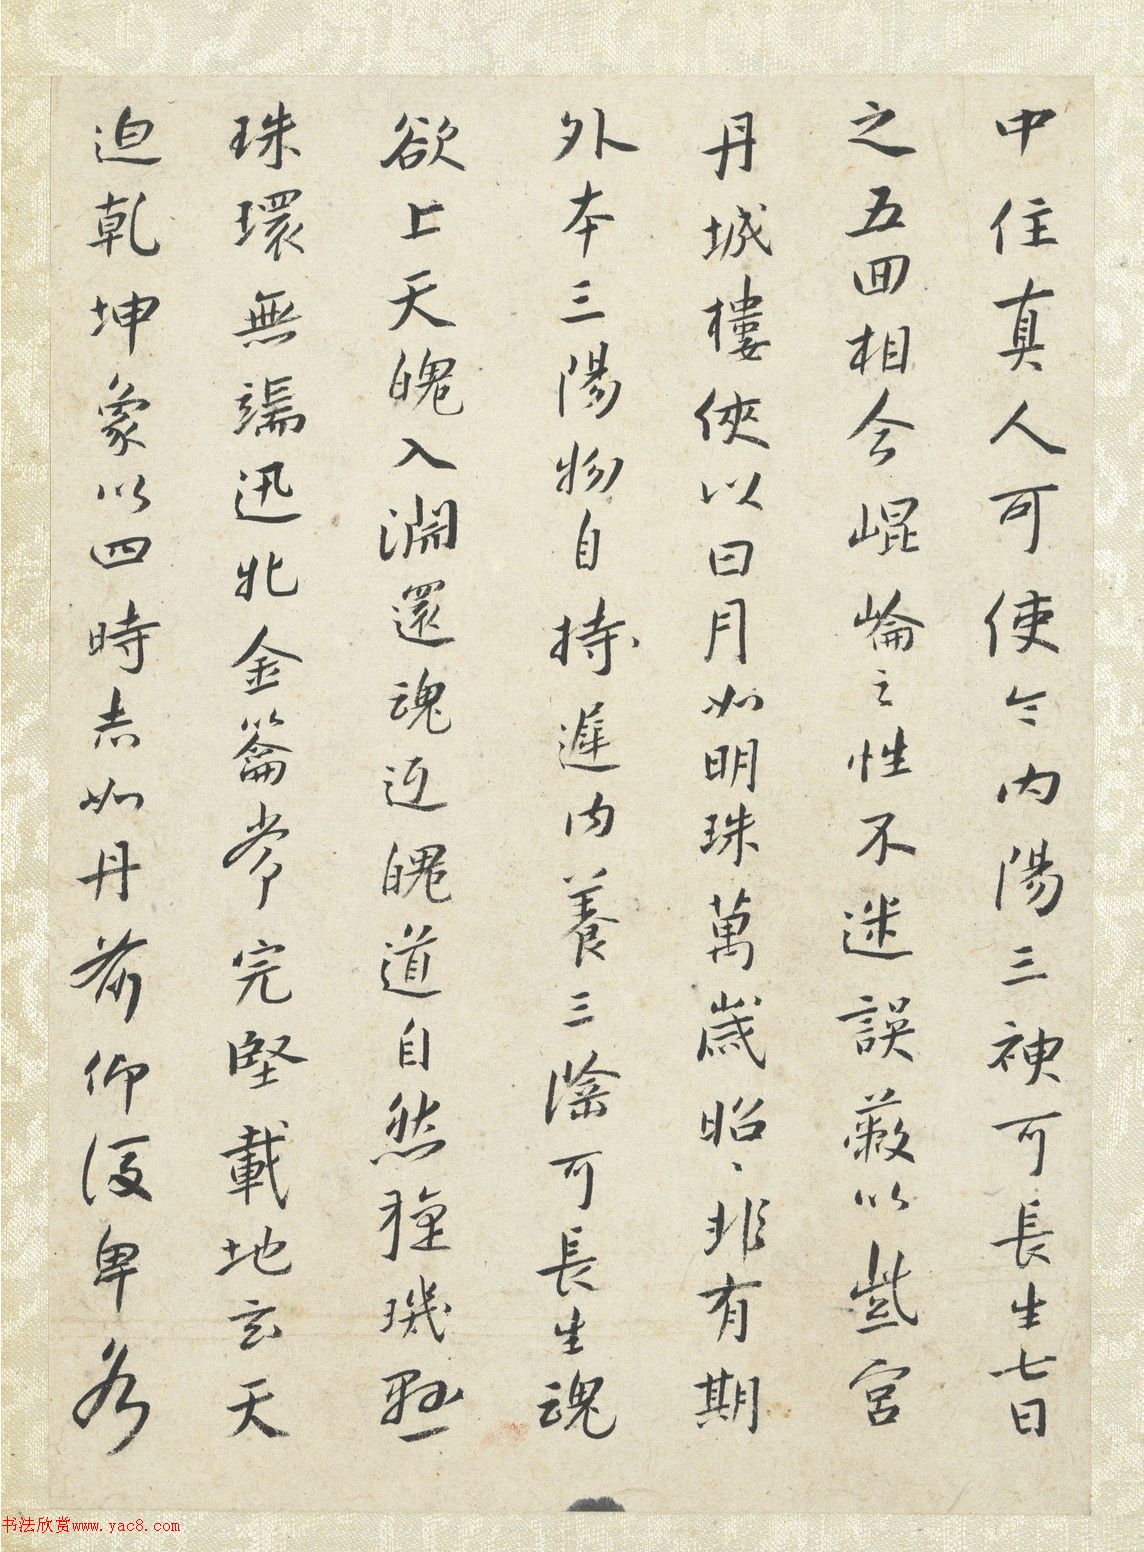 中住真人可使令内陽三神可長生七日
之五回相合崐崘之性不迷誤蔽以紫宮
丹城樓俠以日月如明珠萬歲昭〻非有期
外本三陽物自持遲内養三陰可長生魂
欲上天魄入淵還魂返魄道自然璇璣懸
珠環無端迅牝金籥常完堅載地玄天
迫乾坤象以四時赤如丹前仰後卑各
书法欣赏www.yac8.com